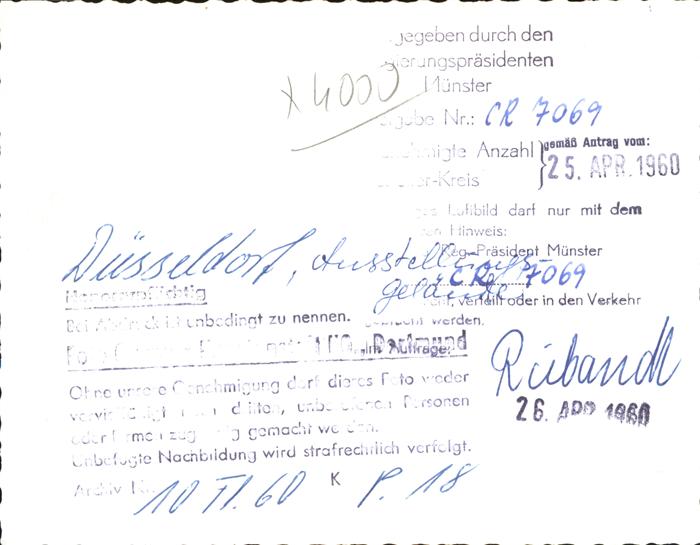 gegeben durch den
Regierungspräsidenten
Münster
x 4000
Nr.: CR 7069
Anzahl
gemäß Antrag vom:
25. APR. 1960
-Kreis
Luftbild darf nur mit dem
Hinweis:
Reg-Präsident Münster
CR 7069
verteilt oder in den Verkehr
werden.
Im Auftrage:
Düsseldorf, Ausstellungs-
gelände
Honorarpflichtig
Bei Abdruck ist unbedingt zu nennen.
Foto Dortmund
Rübandt
26. APR 1960
Ohne unsere Genehmigung darf dieses Foto weder
vervielfältigt noch dritten, unbefugten Personen
oder Firmen zugängig gemacht werden.
Unbefugte Nachbildung wird strafrechtlich verfolgt.
Archiv Nr. 10 FI. 60 K P. 18